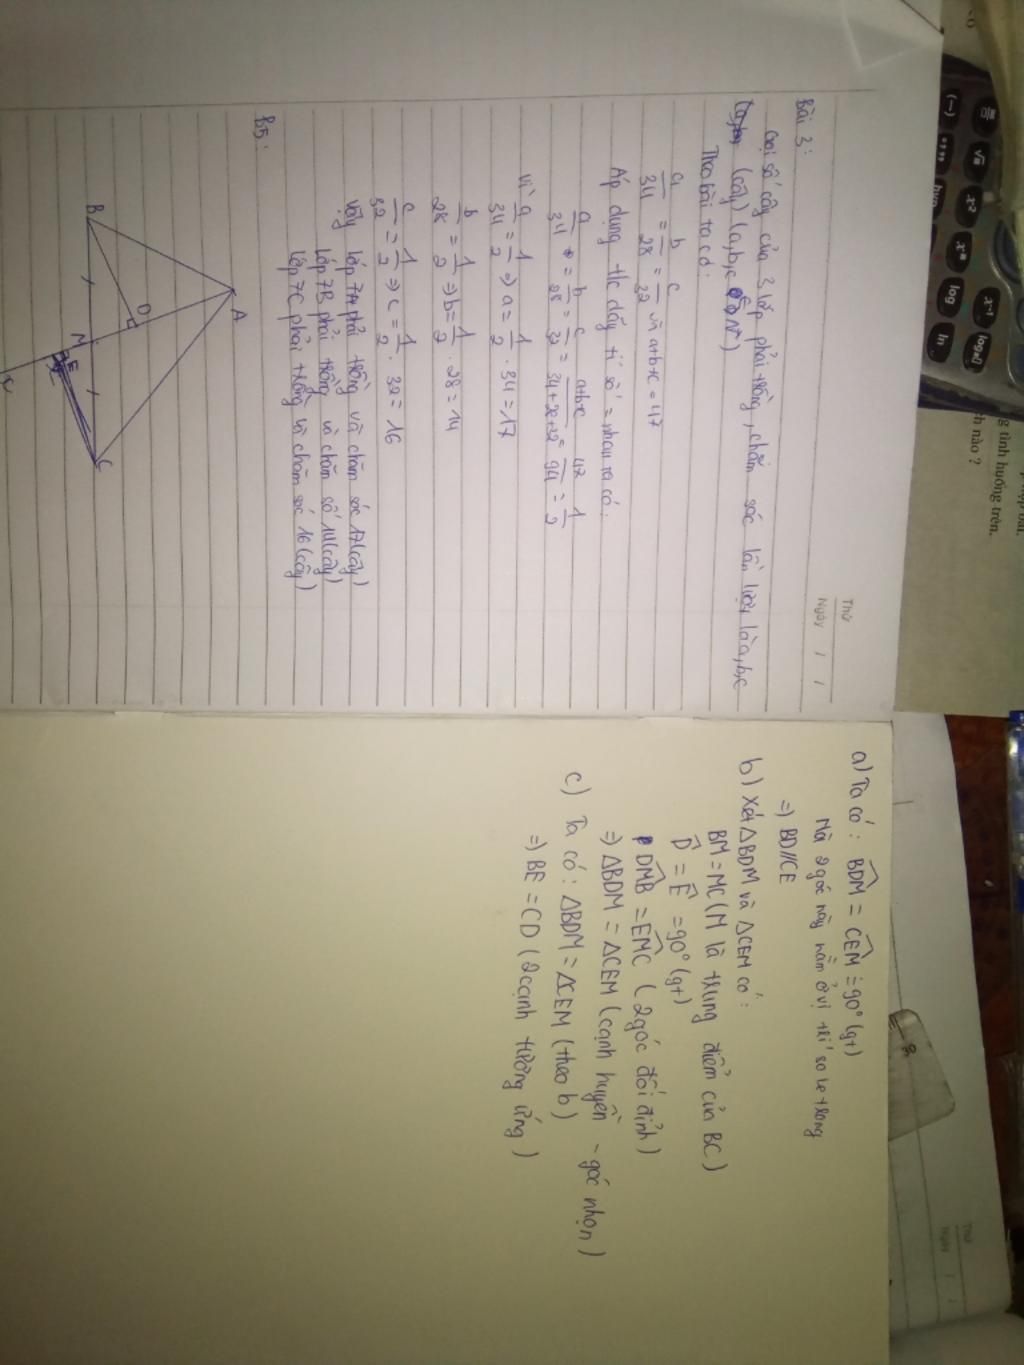 Thứ
Ngày / /
Bài 3:
Gọi số cây của 3 lớp phải trồng, chăm sóc lần lượt là a,b,c
(cây) (a,b,c ∈ N*)
Theo bài ta có:
a/34 = b/28 = c/32 và a+b+c = 47
Áp dụng t/c dãy tỉ số = nhau ta có:
a/34 = b/28 = c/32 = a+b+c/34+28+32 = 47/94 = 1/2
Vì a/34 = 1/2 ⇒ a = 1/2 . 34 = 17
b/28 = 1/2 ⇒ b = 1/2 . 28 = 14
c/32 = 1/2 ⇒ c = 1/2 . 32 = 16
Vậy lớp 7A phải trồng và chăm sóc 17 (cây)
lớp 7B phải trồng và chăm số 14 (cây)
lớp 7C phải trồng và chăm sóc 16 (cây)
B5:
A
B
D
M
E
C
x
a) Ta có: BDM = CEM = 90° (gt)
Mà 2 góc này nằm ở vị trí so le trong
⇒ BD//CE
b) Xét ΔBDM và ΔCEM có:
BM = MC (M là trung điểm của BC)
D = E = 90° (gt)
DMB = EMC (2 góc đối đỉnh)
⇒ ΔBDM = ΔCEM (cạnh huyền - góc nhọn)
c) Ta có: ΔBDM = ΔCEM (theo b)
⇒ BE = CD (2 cạnh tương ứng)
g tình huống trên.
h nào ?
(−)
√x
x²
log
ln
x⁻¹
Thứ
Ngày / /